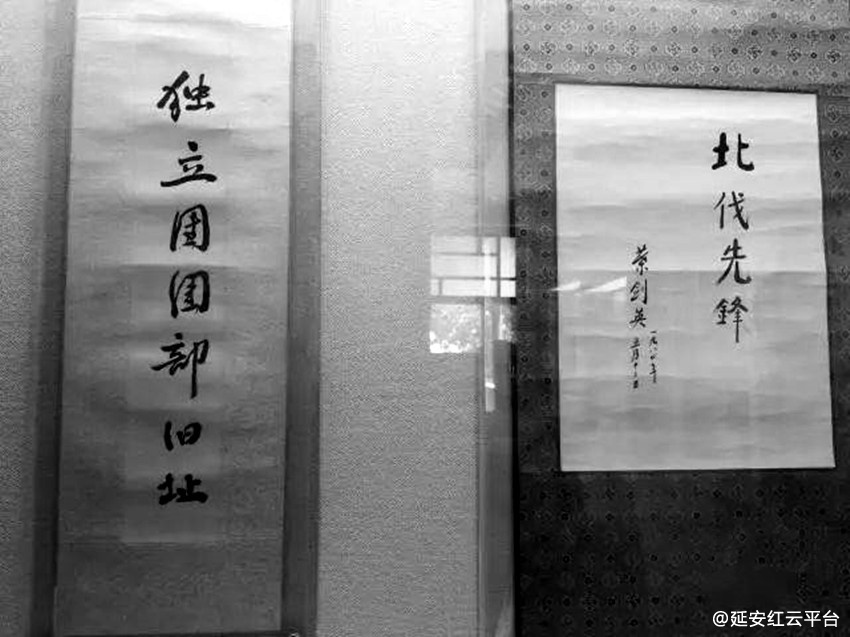 独立团团部旧址
北伐先鋒
叶剑英
一九八〇年
@延安红云平台